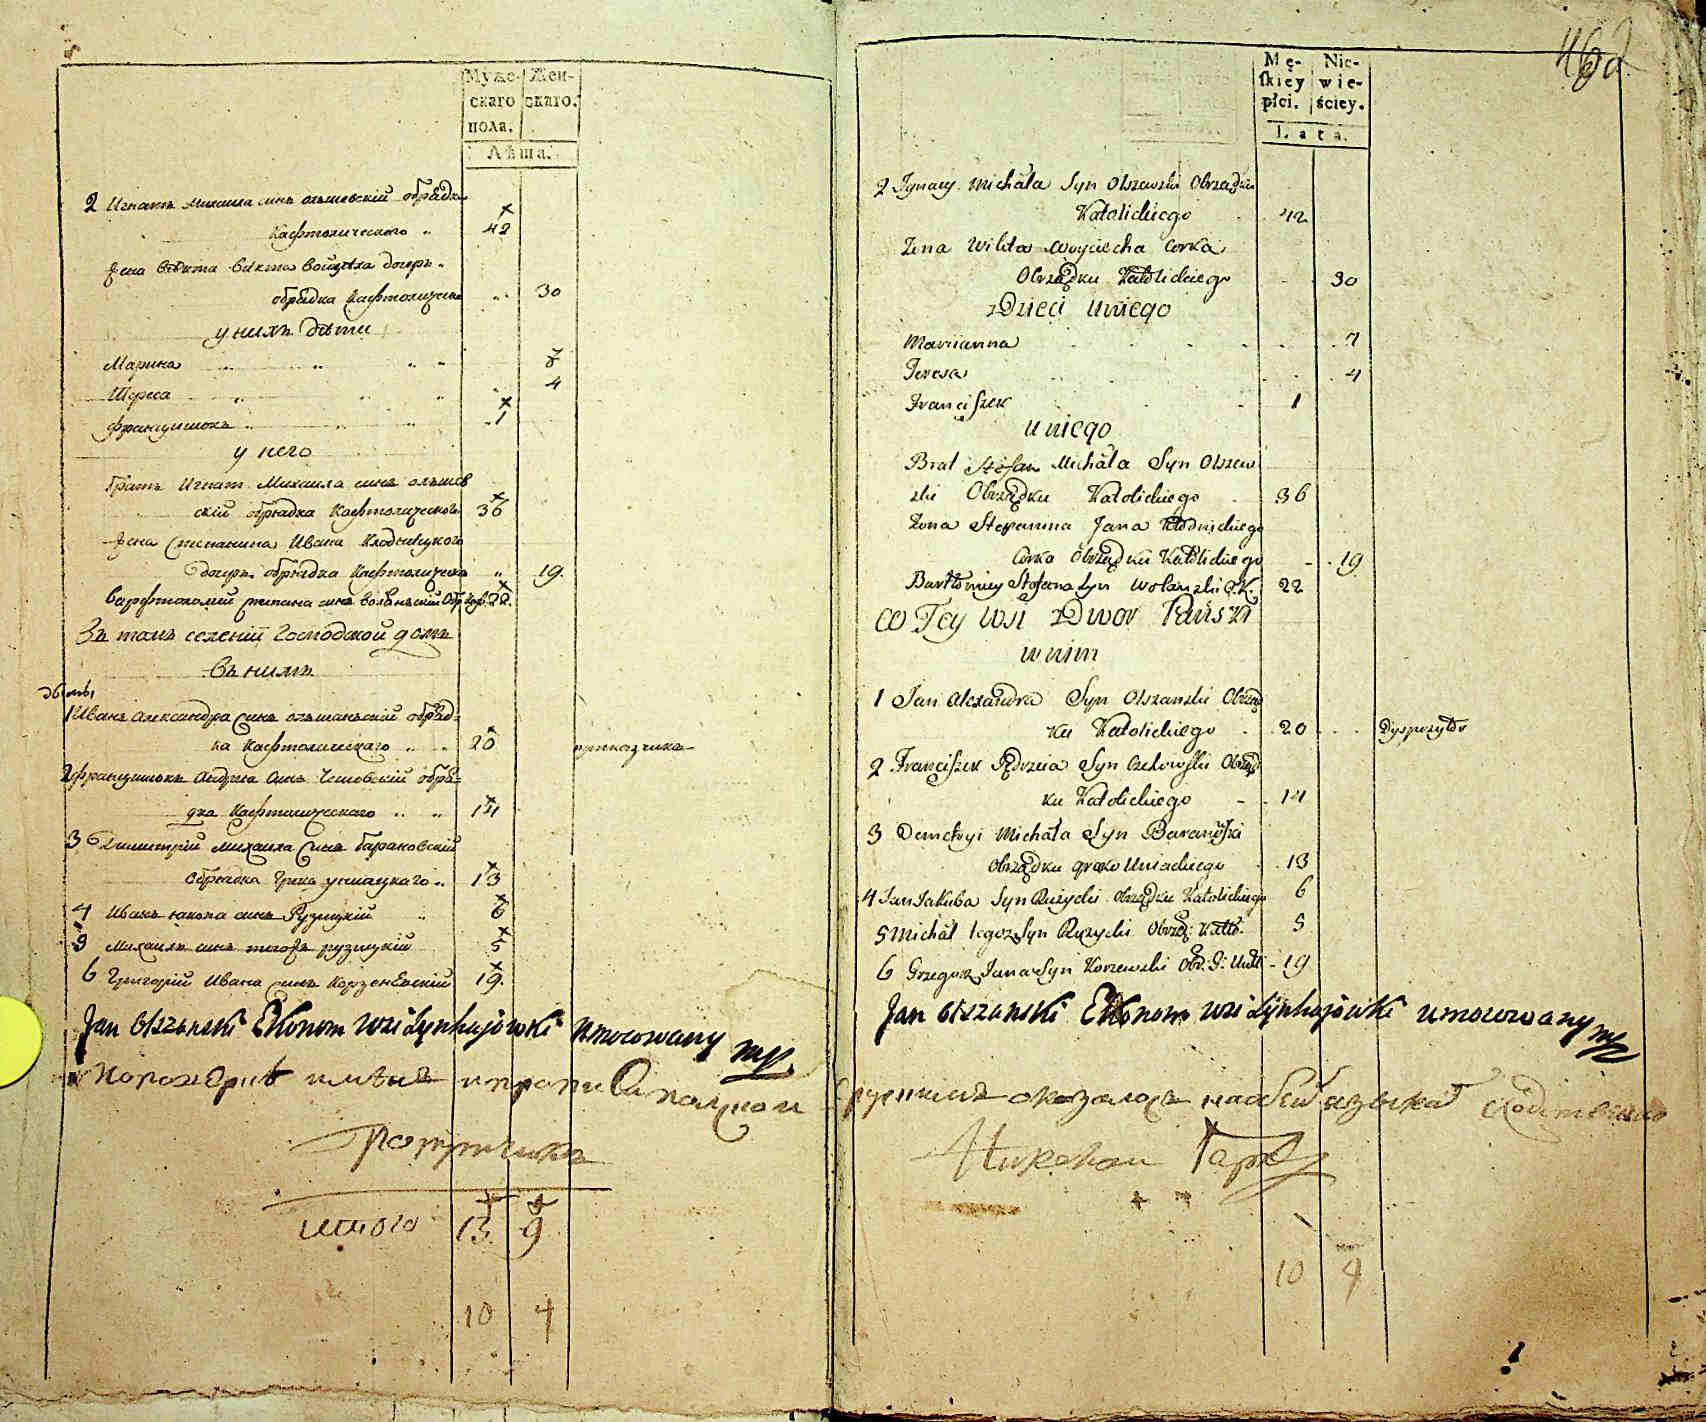 Муже- Жен-
скаго скаго.
пола.
Лѣта.
2 Игнатъ Михаила синъ олшевскій обрадка
Кафтолического 42
Жена Викта Войцеха дочерь
обрадка Кафтолическо 30
у нихъ дѣти
Марина 7
Тереса 4
Францишокъ 1
у него
братъ Игнат Михаила синъ олшев
скій обрадка Кафтолического 36
Жена Степанина Ивана Клодницкого
дочерь обрадка Кафтолическо 19
Варфтоломій степана синъ 22.
Въ томъ селеній Господской домъ
въ нимъ
1 Иванъ Александра синъ олшанскій обрад-
ка Кафтолического 20 приказчика
2 Францишокъ Андрея синъ обра-
дка Кафтолического 14
3 Димитрій михаила синъ барановскій
обрадка Грека униацкаго 13
4 Иванъ якопа синъ Ружицкій 6
5 Михаилъ синъ ружицкій 5
6 Григорій Ивана синъ Корженевскій 19.
Jan Olszanski Ekonom wsi Lynhajówki umocowany mp
итого 13 9
10 4
462
Mę- Nie-
skiey wie-
płci. ściey.
Lata.
2 Ignacy Michała Syn Olszewski Obrządku
Katolickiego 42
Żona Wikta Woyciecha Corka
Obrządku Katolickiego 30
Dzieci u niego
Marianna 7
Teresa 4
Franciszek 1
u niego
Brat Stefan Michała Syn Olszew
ski Obrządku Katolickiego 36
Żona Stefanina Jana Kłodnickiego
Corka Obrządku Katolickiego 19
Bartłomiey Stefana Syn Wolanski O.K. 22
w Tey Wsi Dwor Pański
w nim
1 Jan Alexandra Syn Olszanski Obrząd
ku Katolickiego 20 Dyspozytor
2 Franciszek Jędrzeia Syn Czekowski Obrząd
ku Katolickiego 14
3 Demetryi Michała Syn Baranowski
Obrządku greko Uniackiego 13
4 Jan Jakuba Syn Rużycki Obrządku Katolickiego 6
5 Michał tegoż Syn Rużycki Obrząd: Kato. 5
6 Grzegorz Jana Syn Korzewski Obr: G: Uniac 19
Jan Olszanski Ekonom wsi Lynhajówki umocowany mp
10 4